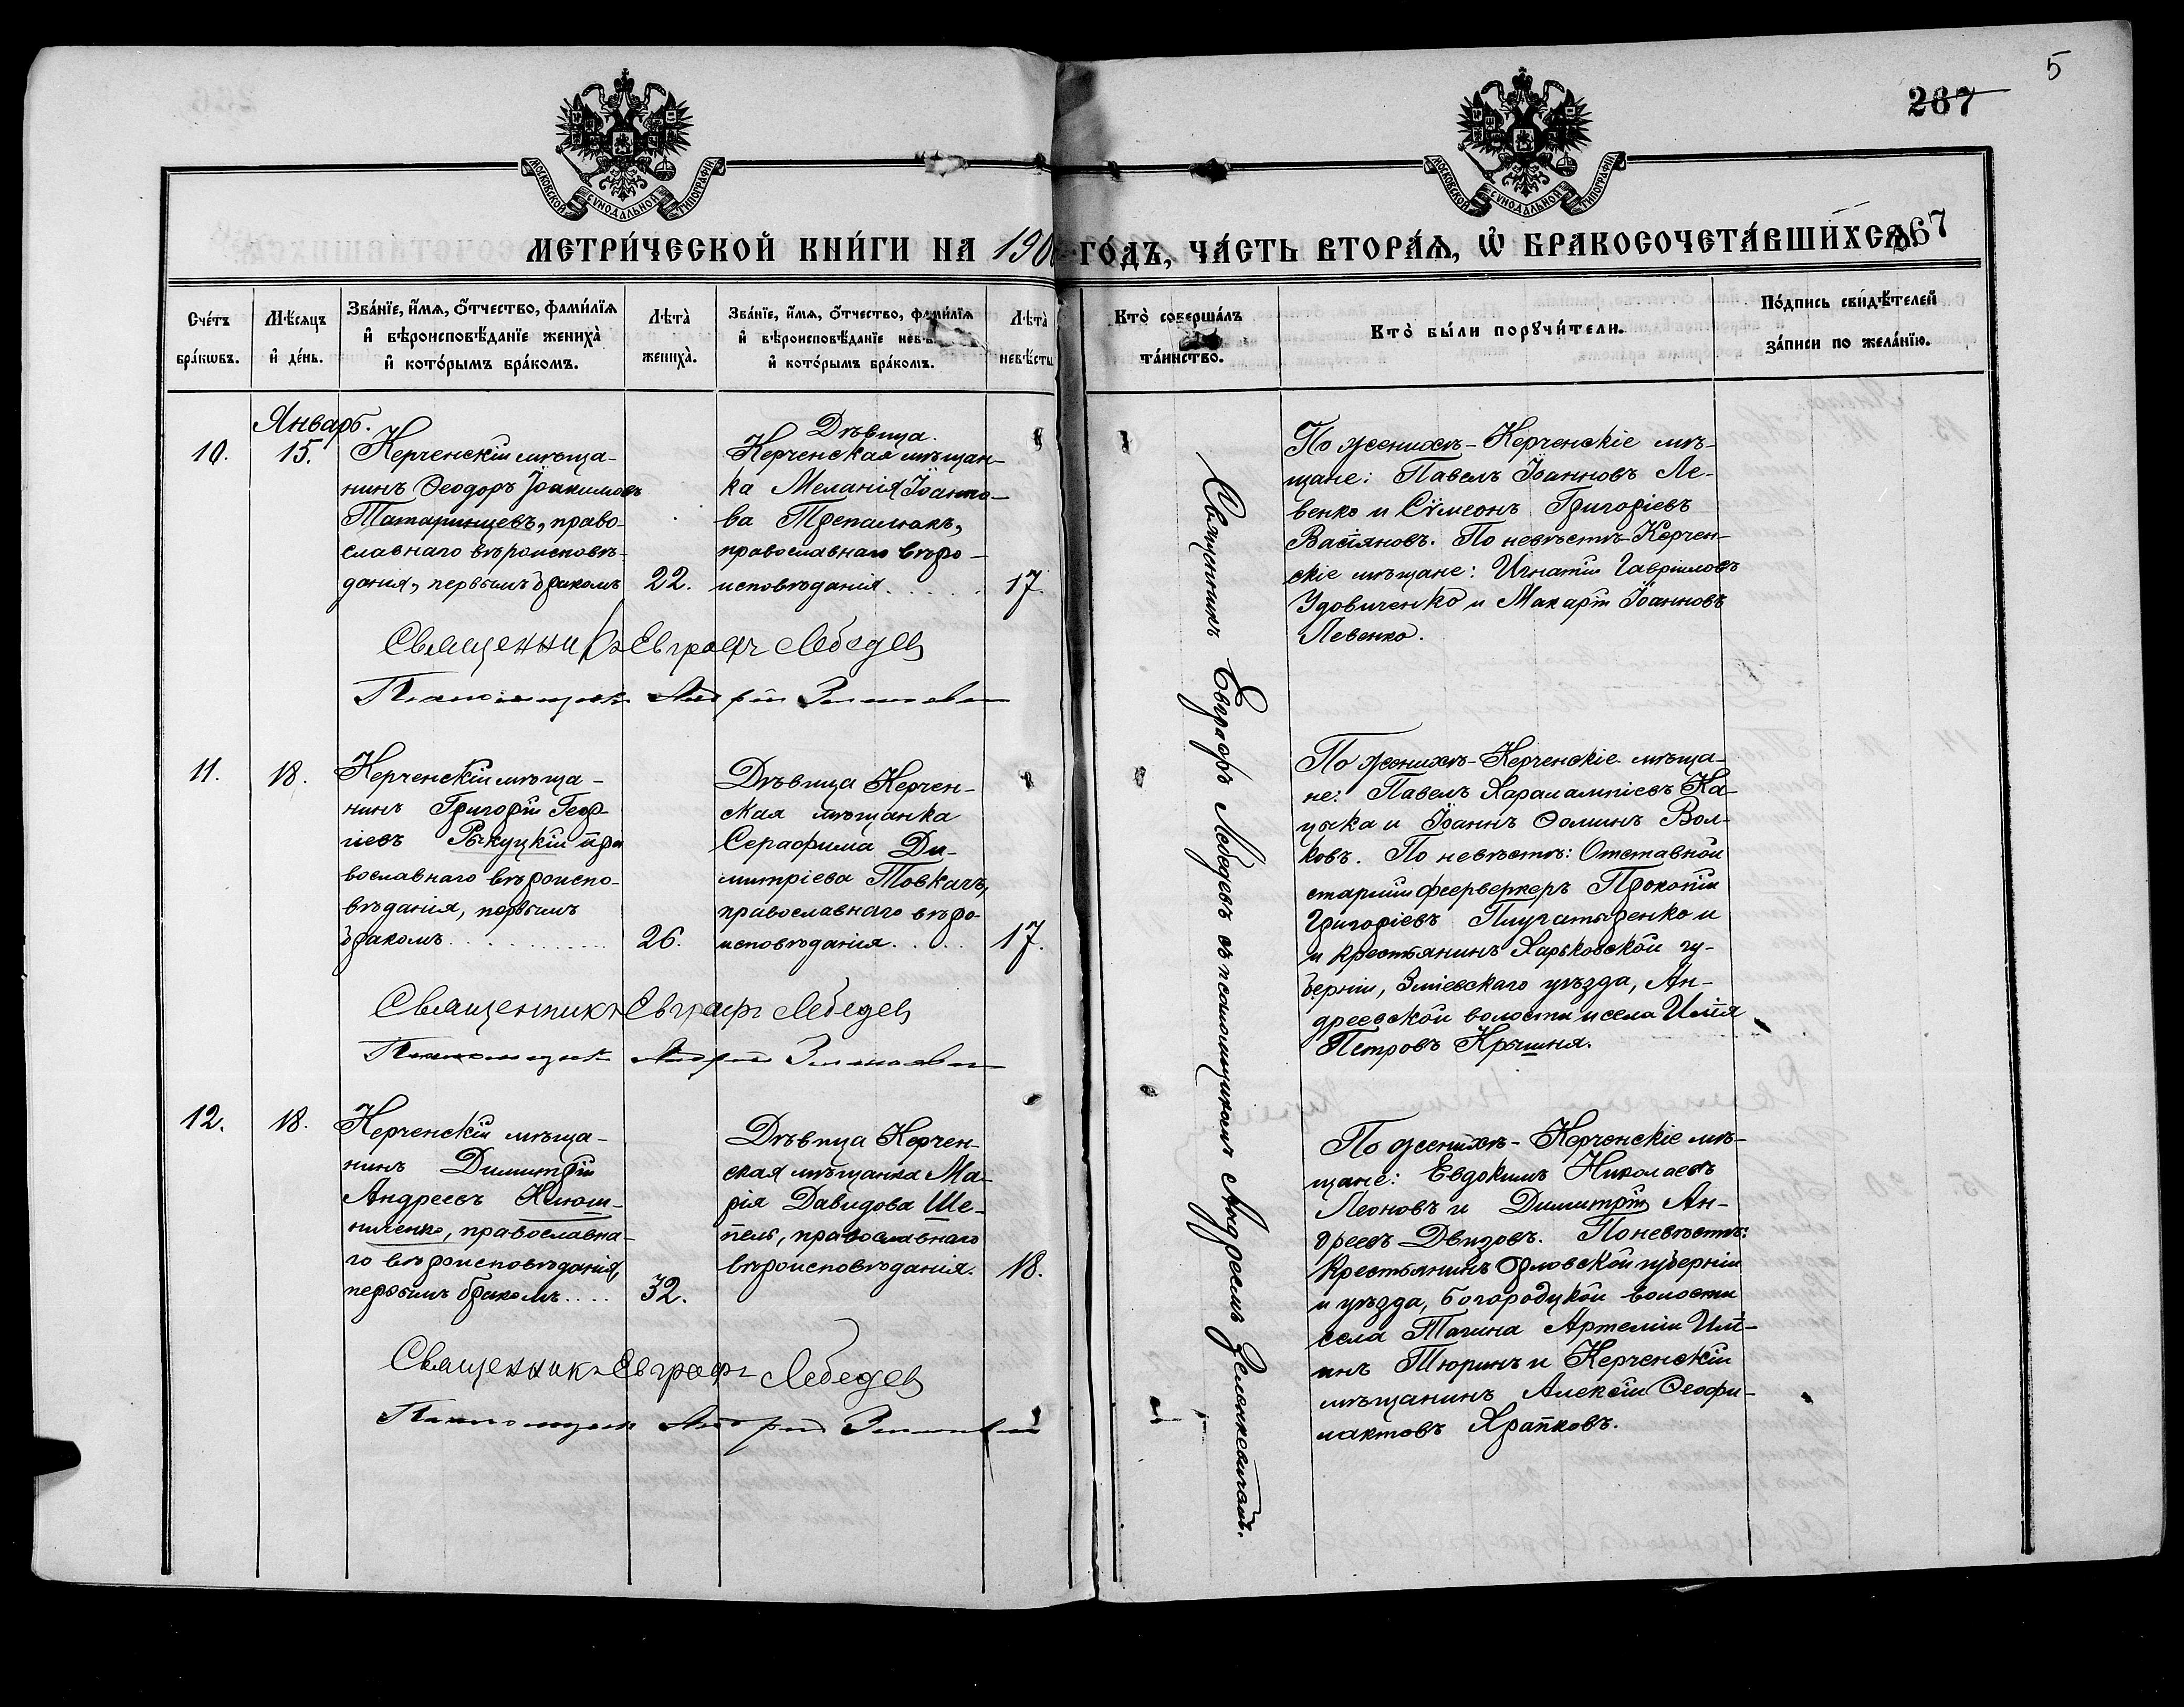 5
267
МОСКОВСКОЙ СѴНОДАЛЬНОЙ ТИПОГРАФІИ
МОСКОВСКОЙ СѴНОДАЛЬНОЙ ТИПОГРАФІИ
МЕТРИ́ЧЕСКОЙ КНИ́ГИ НА 190 ГО́ДЪ, ЧА́СТЬ ВТОРА́Ѧ, Ѽ БРАКОСОЧЕТА́ВШИ́ХСѦ. 367
Сче́тъ бра́кѡвъ.
Мѣ́сѧцъ и҆ де́нь.
Зва́нїе, и҆́мѧ, ѻ҆́тчество, фами́лїѧ
и҆ вѣроисповѣ́данїе жениха̀
и҆ кото́рымъ бра́комъ.
Лѣта̀ жениха̀.
Зва́нїе, и҆́мѧ, ѻ҆́тчество, фами́лїѧ
и҆ вѣроисповѣ́данїе
и҆ кото́рымъ бра́комъ.
Лѣта̀ невѣ́сты
Кто̀ соверша́лъ та́инство.
Кто̀ бы́ли порꙋчи́тели.
По́дпись свидѣ́телей
за́писи по жела́нїю.
Январь.
10. 15.
Керченскій мѣща-
нинъ Ѳеодоръ Іоакимовъ
Татаринцевъ, право-
славнаго вѣроисповѣ-
данія, первымъ бракомъ 22.
Дѣвица.
Керченская мѣщан-
ка Меланія Іоанно-
ва Трепалюкъ,
православнаго вѣро-
исповѣданія...... 17.
Священникъ Евграфъ Лебедев
Псаломщикъ Андрей
По женихѣ-Керченскіе мѣ-
щане: Павелъ Іоанновъ Ле-
венко и Сѵмеонъ Григоріевъ
Васіяновъ. По невѣстѣ-Керчен-
скіе мѣщане: Игнатій Гавріиловъ
Удовиченко и Макарій Іоанновъ
Левенко.
11. 18.
Керченскій мѣща-
нинъ Григорій Геор-
гіевъ Рыкуцкій пра
вославнаго вѣроиспо-
вѣданія, первымъ
бракомъ............ 26.
Дѣвица Керчен-
ская мѣщанка
Серафима Ди-
митріева Товкачъ,
православнаго вѣро-
исповѣданія..... 17.
Священникъ Евграфъ Лебедев
Псаломщикъ Андрей
По женихѣ-Керченскіе мѣща-
не: Павелъ Харалампіевъ Ка-
цыка и Іоаннъ Ѳоминъ Вол-
ковъ. По невѣстѣ: Отставной
старшій фейерверкеръ Прокопій
Григоріевъ Плугатыренко и
и крестьянинъ Харьковской гу-
берніи, Зміевскаго уѣзда, Ан-
дреевской волости и села Илія
Петровъ Крышня.
12. 18.
Керченскій мѣща-
нинъ Димитрій
Андреевъ Клюш-
ниленко, православна-
го вѣроисповѣданія,
первымъ бракомъ.... 32.
Дѣвица Керчен-
ская мѣщанка Ма-
рія Давидова Ше-
пель, православнаго
вѣроисповѣданія. 18.
Священникъ Евграфъ Лебедев
Псаломщикъ Андрей
По женихѣ-Керченскіе мѣ-
щане: Евдокимъ Николаевъ
Леоновъ и Димитрій Ан-
дреевъ Двизовъ. По невѣстѣ:
Крестьянинъ Орловской губерніи
и уѣзда, Богородцкой волости
села Тагина Артемій Иль-
инъ Тюринъ и Керченскій
мѣщанинъ Алексій Ѳеофи-
лактовъ Храпковъ.
Священникъ Евграфъ Лебедевъ съ псаломщикомъ Андреемъ Зеленкевичомъ.